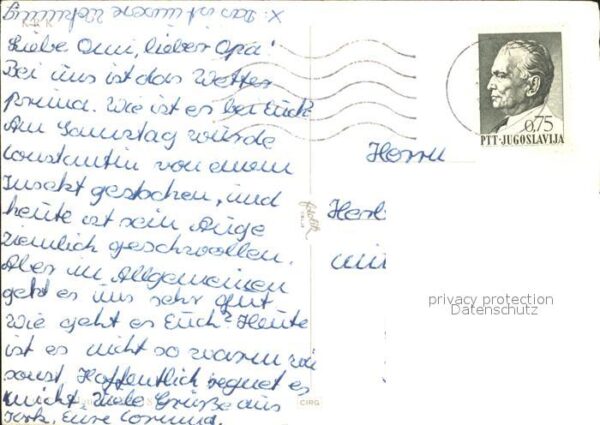 X: Das ist unsere Wohnung
Liebe Omi, lieber Opa!
Bei uns ist das Wetter
prima. Wie ist es bei Euch?
Am Samstag wurde
Constantin von einem
Insekt gestochen, und
heute ist sein Auge
ziemlich geschwollen.
Aber im Allgemeinen
geht es uns sehr gut
Wie geht es Euch? Heute
ist es nicht so warm wie
sonst Hoffentlich regnet es
nicht. Viele Grüße aus
Krk, Eure
Herrn
0,75
PTT-JUGOSLAVIJA
privacy protection
Datenschutz